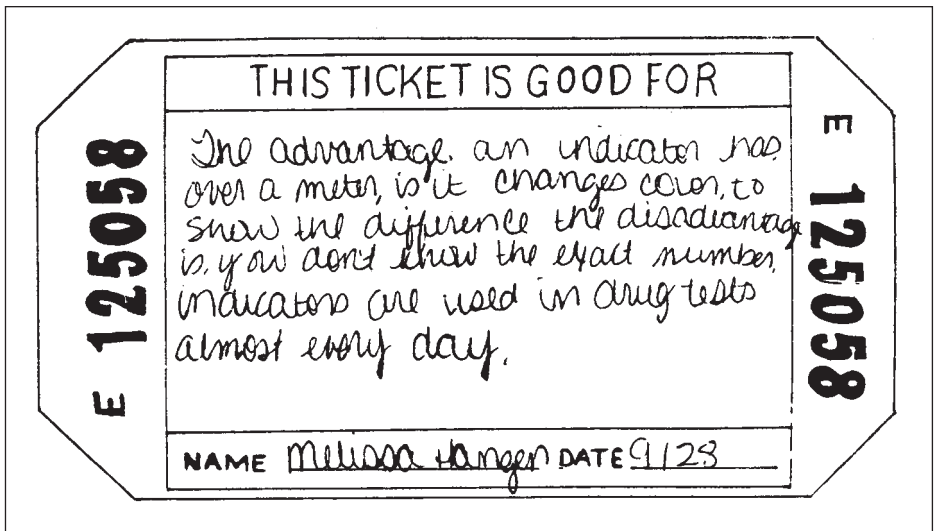 THIS TICKET IS GOOD FOR
The advantage. an indicator has
over a meter, is it changes color, to
show the difference the disadvantage
is, you don't know the exact number,
indicators are used in drug tests
almost every day.
NAME Melissa Hangen DATE 9/28
E 125058
E 125058